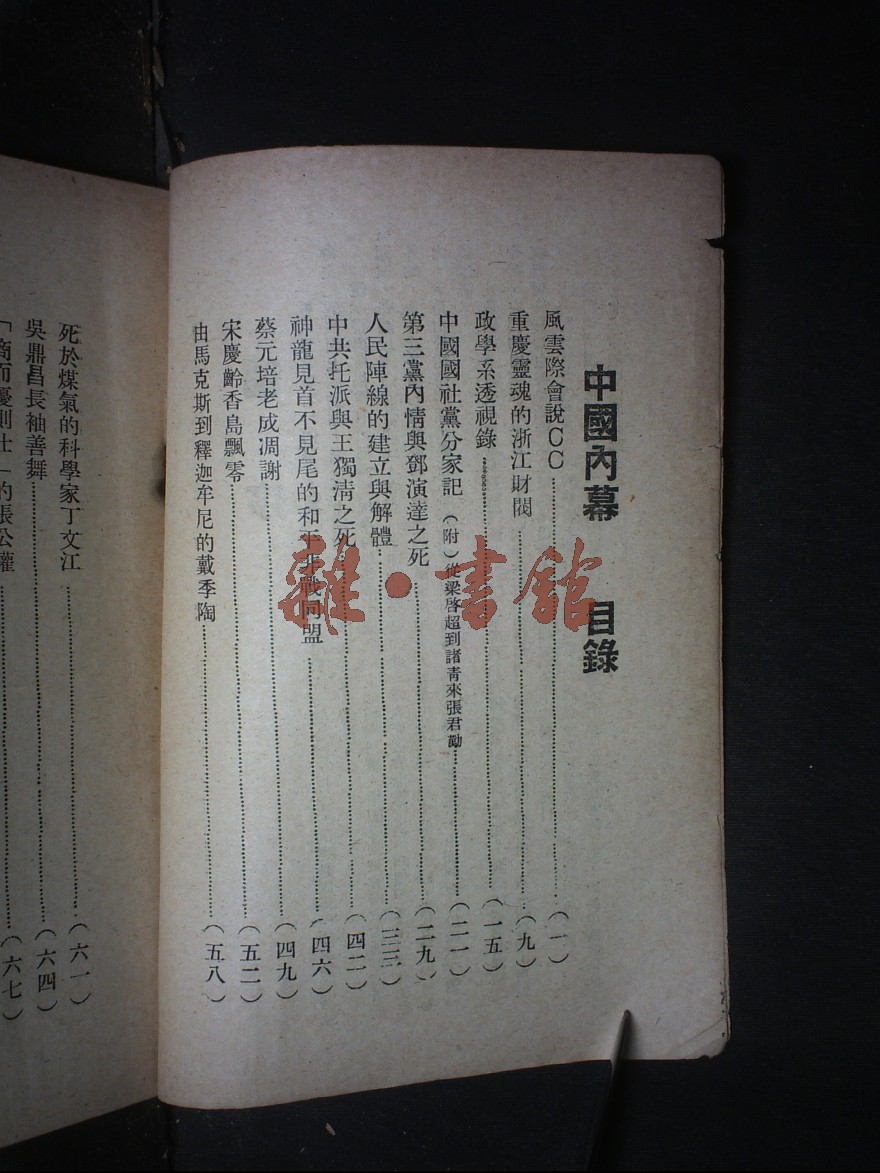 中國內幕　目錄
風雲際會說CC……(一)
重慶靈魂的浙江財閥……(九)
政學系透視錄……(一五)
中國國社黨分家記 (附)從梁啓超到諸青來張君勱……(二一)
第三黨內情與鄧演達之死……(二九)
人民陣線的建立與解體……(三三)
中共托派與王獨清之死……(四二)
神龍見首不見尾的和平非戰同盟……(四六)
蔡元培老成凋謝……(四九)
宋慶齡香島飄零……(五二)
由馬克斯到釋迦牟尼的戴季陶……(五八)
死於煤氣的科學家丁文江……(六一)
吳鼎昌長袖善舞……(六四)
「商而優則仕」的張公權……(六七)
雜·書館